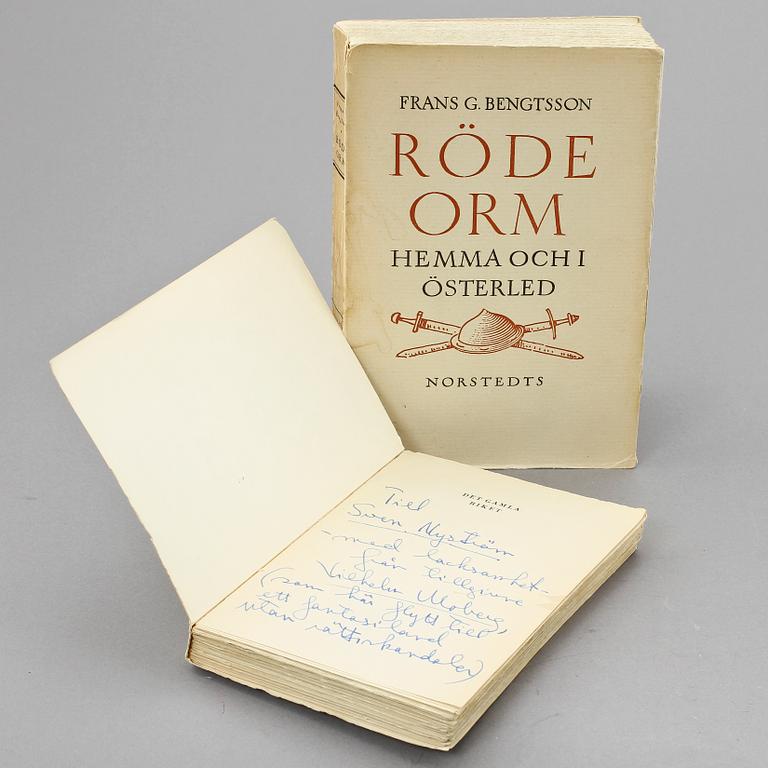 FRANS G. BENGTSSON
RÖDE
ORM
HEMMA OCH I
ÖSTERLED
NORSTEDTS
DET GAMLA
RIKET
Till
Sven Nyström
- med tacksamhet -
från tillgivne
Vilhelm Moberg,
(som här flytt till
ett fantasiland
utan rättsskandaler)